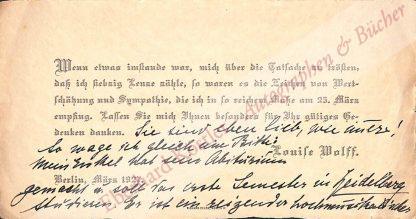 Wenn etwas imstande war, mich über die Tatsache zu trösten,
daß ich siebzig Lenze zähle, so waren es die Zeichen von Wert-
schätzung und Sympathie, die ich in so reichem Maße am 25. März
empfing. Lassen Sie mich Ihnen besonders für Ihr gütiges Ge-
denken danken. Sie sind eben lieb, wie immer!
So wage ich gleich eine Bitte:
Louise Wolff.
Mein Enkel hat sein Abiturium
Berlin, März 192
gemacht u. soll das erste Semester in Heidelberg
studieren. Er ist ein reizender
Eberhard Autographen & Bücher